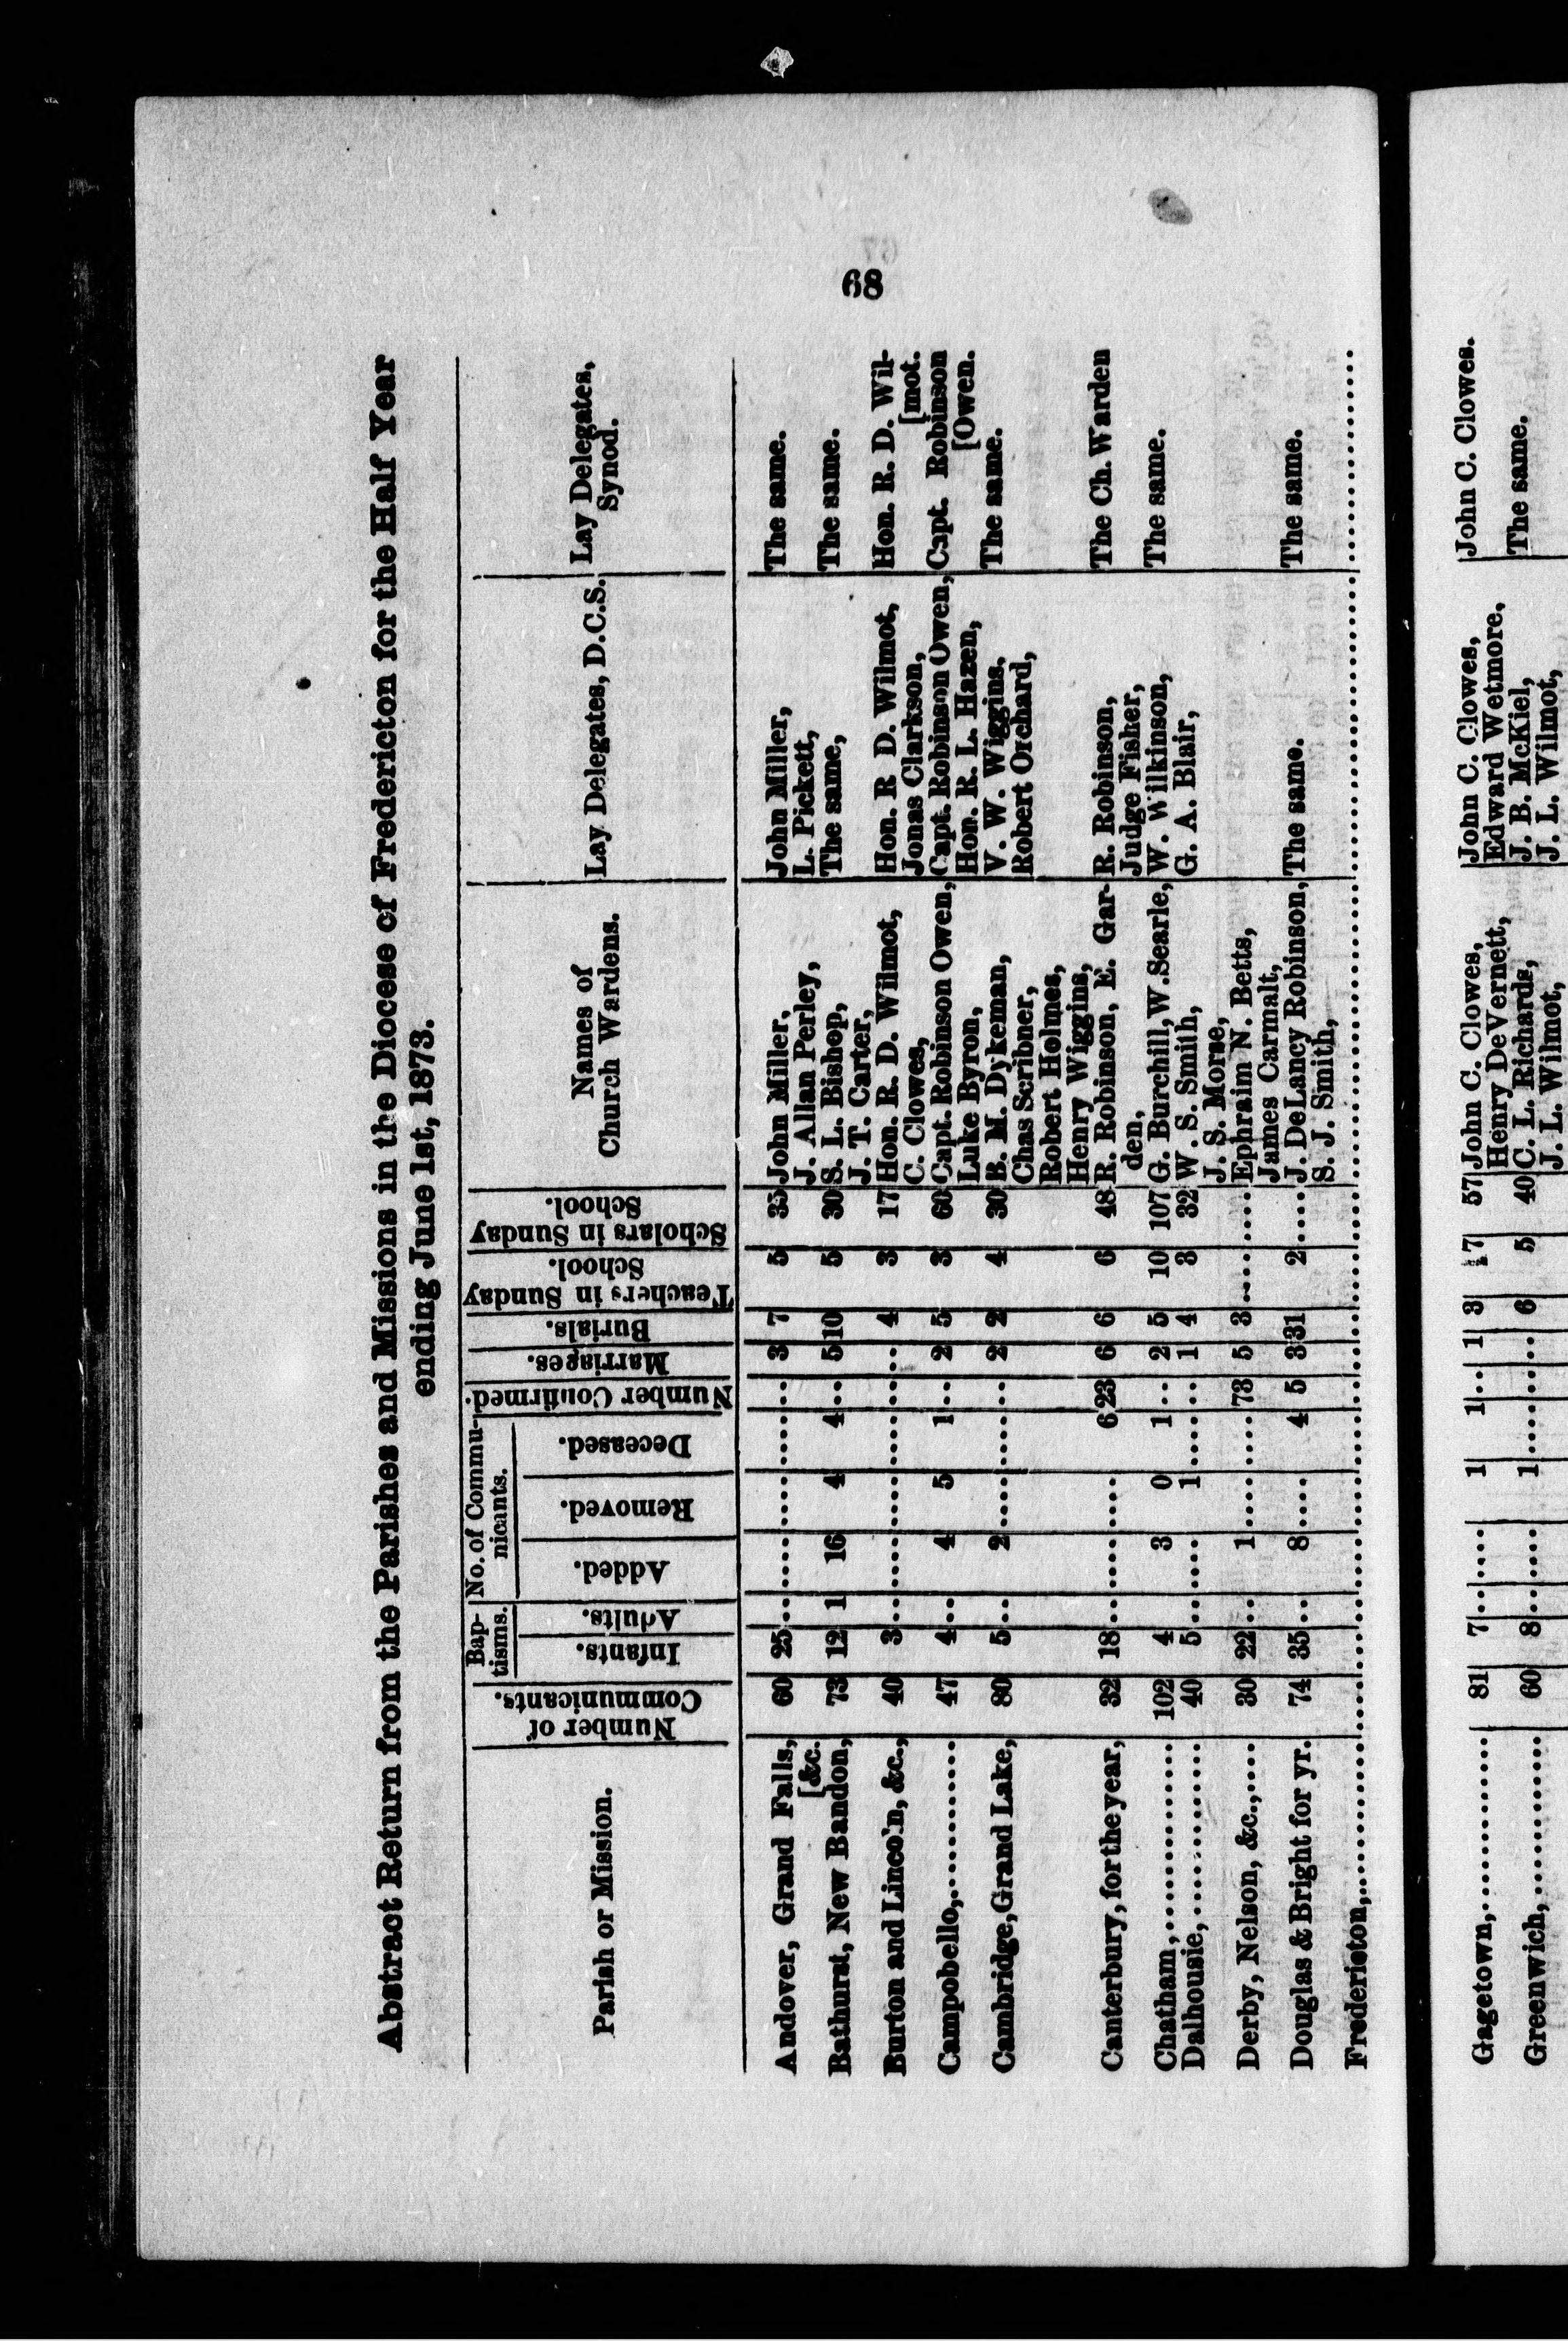 68
Abstract Return from the Parishes and Missions in the Diocese of Fredericton for the Half Year
ending June 1st, 1873.
Parish or Mission.
Number of Communicants.
Bap-
tisms.
Infants.
Adults.
No. of Commu-
nicants.
Added.
Removed.
Deceased.
Number Confirmed.
Marriages.
Burials.
Teachers in Sunday School.
Scholars in Sunday School.
Names of
Church Wardens.
Lay Delegates, D.C.S.
Lay Delegates,
Synod.
Andover, Grand Falls, 60 25 ... ...... ...... ...... ... 3 7 5 35 John Miller, John Miller, The same.
[&c. J. Allan Perley, L. Pickett,
Bathurst, New Bandon, 73 12 1 16 4 4 ... 5 10 5 30 S. L. Bishop, The same, The same.
J. T. Carter,
Burton and Lincoln, &c., 40 3 ... ...... ...... ...... ... ... 4 3 17 Hon. R. D. Wilmot, Hon. R D. Wilmot, Hon. R. D. Wil-
C. Clowes, Jonas Clarkson, [mot.
Campobello,............ 47 4 ... 4 5 1 ... 2 5 3 60 Capt. Robinson Owen, Capt. Robinson Owen, Capt. Robinson
Luke Byron, Hon. R. L. Hazen, [Owen.
Cambridge, Grand Lake, 80 5 ... 2 ...... ...... ... 2 2 4 30 B. M. Dykeman, V. W. Wiggins, The same.
Chas Scribner, Robert Orchard,
Robert Holmes,
Henry Wiggins,
Canterbury, for the year, 32 18 ... ...... ...... 6 23 6 6 6 48 R. Robinson, E. Gar- R. Robinson, The Ch. Warden
den, Judge Fisher,
Chatham,............... 102 4 ... 3 0 1 ... 2 5 10 107 G. Burchill, W. Searle, W. Wilkinson, The same.
Dalhousie,.............. 40 5 ... ...... 1 ...... ... 1 4 3 32 W. S. Smith, G. A. Blair,
J. S. Morse,
Derby, Nelson, &c.,.... 30 22 ... 1 ...... ...... 73 5 3 ...... ...... Ephraim N. Betts,
James Carmalt,
Douglas & Bright for yr. 74 35 ... 8 ...... 4 5 3 31 2 ...... J. DeLancy Robinson, The same. The same.
S. J. Smith,
Fredericton,............
Gagetown,............. 81 7 ... ...... 1 1 ... 1 3 17 57 John C. Clowes, John C. Clowes, John C. Clowes.
Henry DeVernett, Edward Wetmore,
Greenwich,............. 60 8 ... ...... 1 1 ... ... 6 5 40 C. L. Richards, J. B. McKiel, The same.
J. L. Wilmot, J. L. Wilmot,